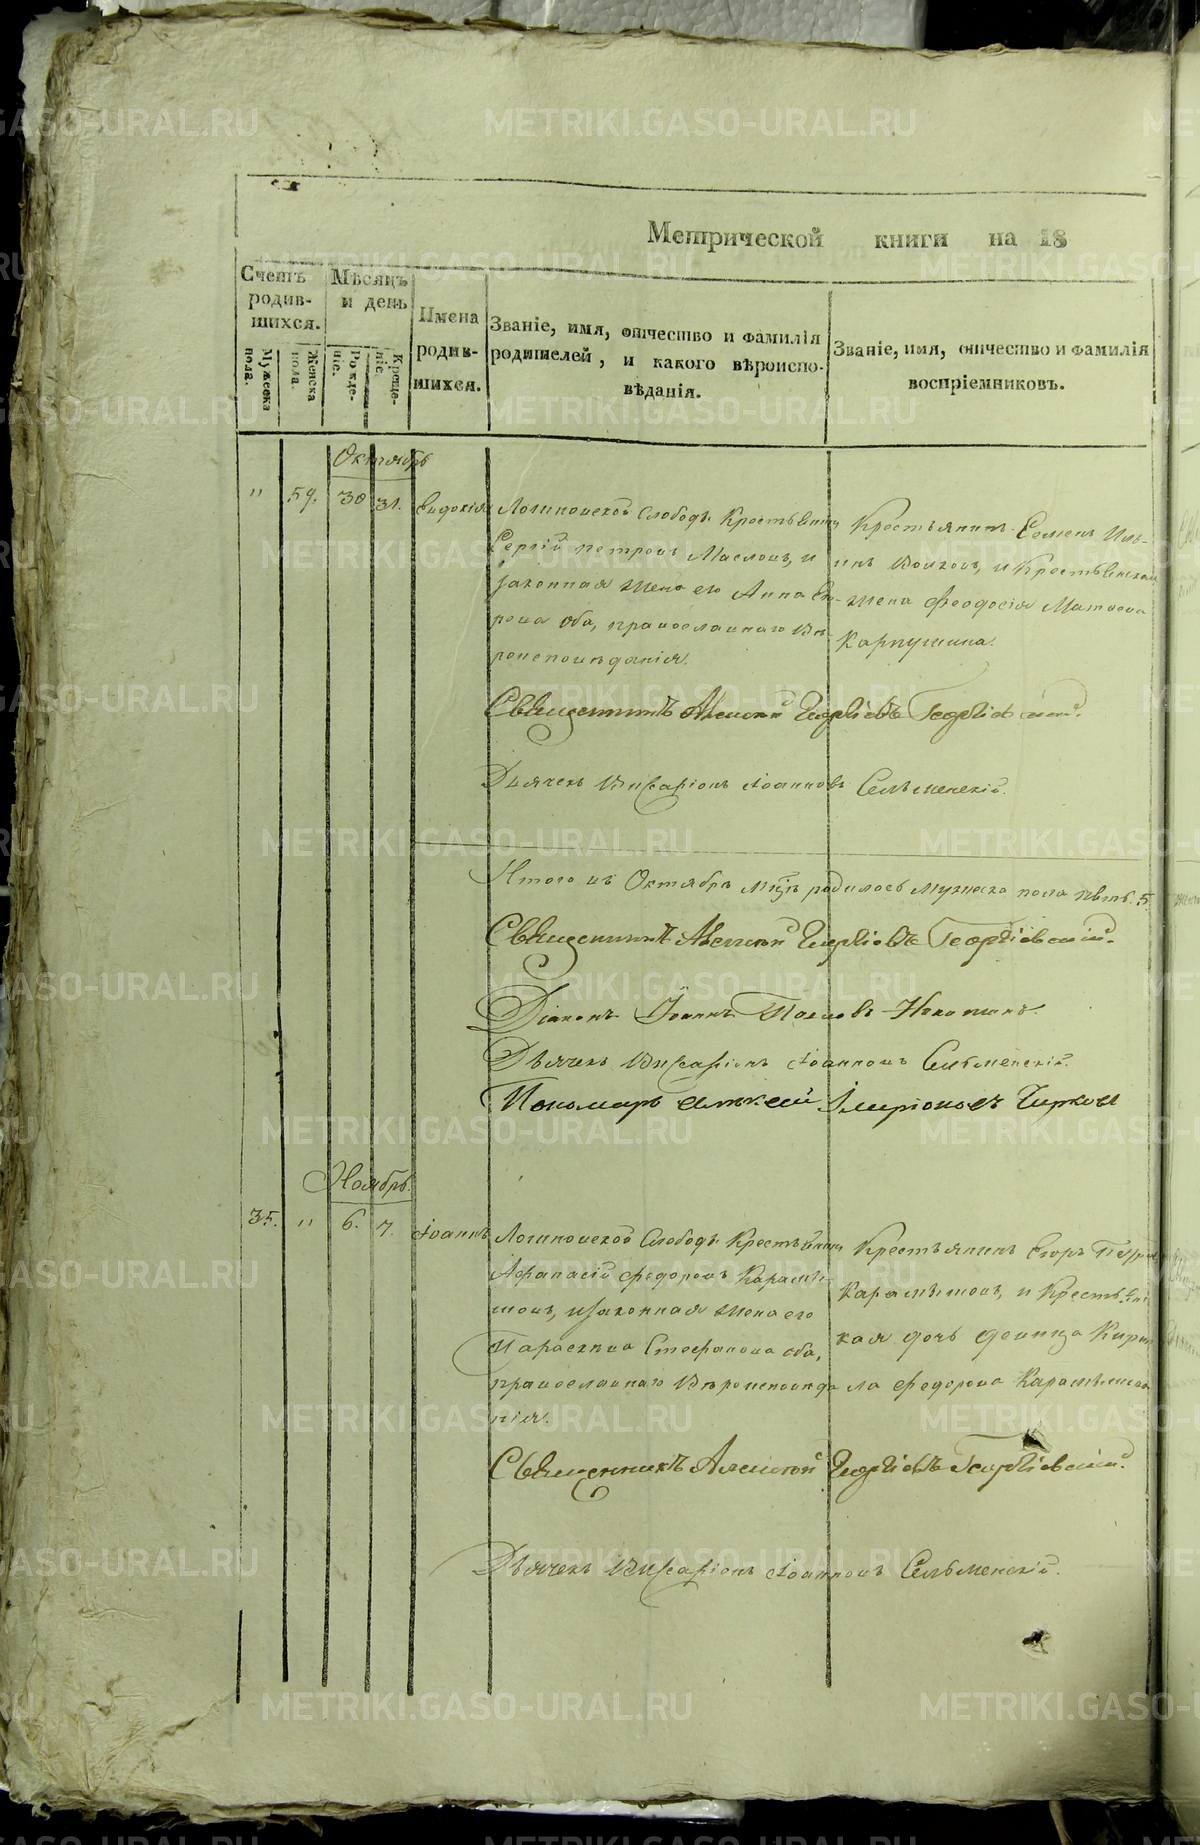 Метрической книги на 18
Счетъ родив-шихся.
Мужеска пола.
Женска пола.
Мѣсяцъ и день
Рожде-ніе.
Креще-ніе.
Имена родив-шихся.
Званіе, имя, отчество и фамилія родителей, и какого вѣроиспо-вѣданія.
Званіе, имя, отчество и фамилія воспріемниковъ.
Октябрь
" 59. 30 31. Евдокія
Логиновской Слободы Крестьянинъ
Сергій Петровъ Масловъ, и
законная жена его Анна
рова оба, православнаго вѣ-
роисповѣданія.
Крестьянинъ Семенъ Иль-
инъ Волковъ, и Крестьянская
жена Феодосія Матвеева
Карпушина.
Священникъ Алексій Георгіевъ Георгіевскій.
Дьячекъ Виссаріонъ Іоанновъ Сельменскій.
Итого въ Октябрѣ мцѣ родилось мужеска пола пять. 5.
Священникъ Алексій Георгіевъ Георгіевскій.
Діаконъ Іоаннъ
Дьячекъ Виссаріонъ Іоанновъ Сельменскій.
Пономарь Алексѣй Иларіоновъ Чирковъ
Ноябрь.
35. " 6. 7. Іоаннъ
Логиновской Слободы Крестьянинъ
Афанасій Федоровъ Карамы-
шовъ, и законная жена его
Параскева Стефанова оба,
православнаго вѣроисповѣда
нія.
Крестьянинъ Егоръ
Карамышовъ, и Крестьянс
кая дочь девица Кири
ла Федорова Карамышова
Священникъ Алексій Георгіевъ Георгіевскій.
Дьячекъ Виссаріонъ Іоанновъ Сельменскій.
METRIKI.GASO-URAL.RU